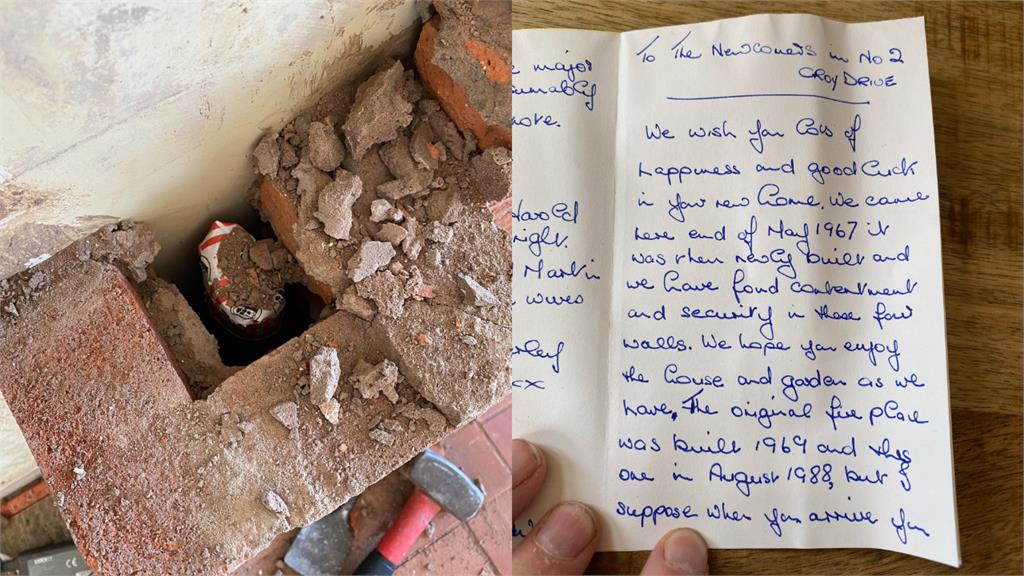 major
note.
Harold
right.
Martin
wives
xx
To The Newcomers in No 2
CROY DRIVE
We wish you lots of
happiness and good luck
in your new home. We came
here end of May 1967 it
was then newly built and
we have found contentment
and security in these four
walls. We hope you enjoy
the house and garden as we
have. The original fire place
was built 1969 and this
one in August 1988, but I
suppose when you arrive you